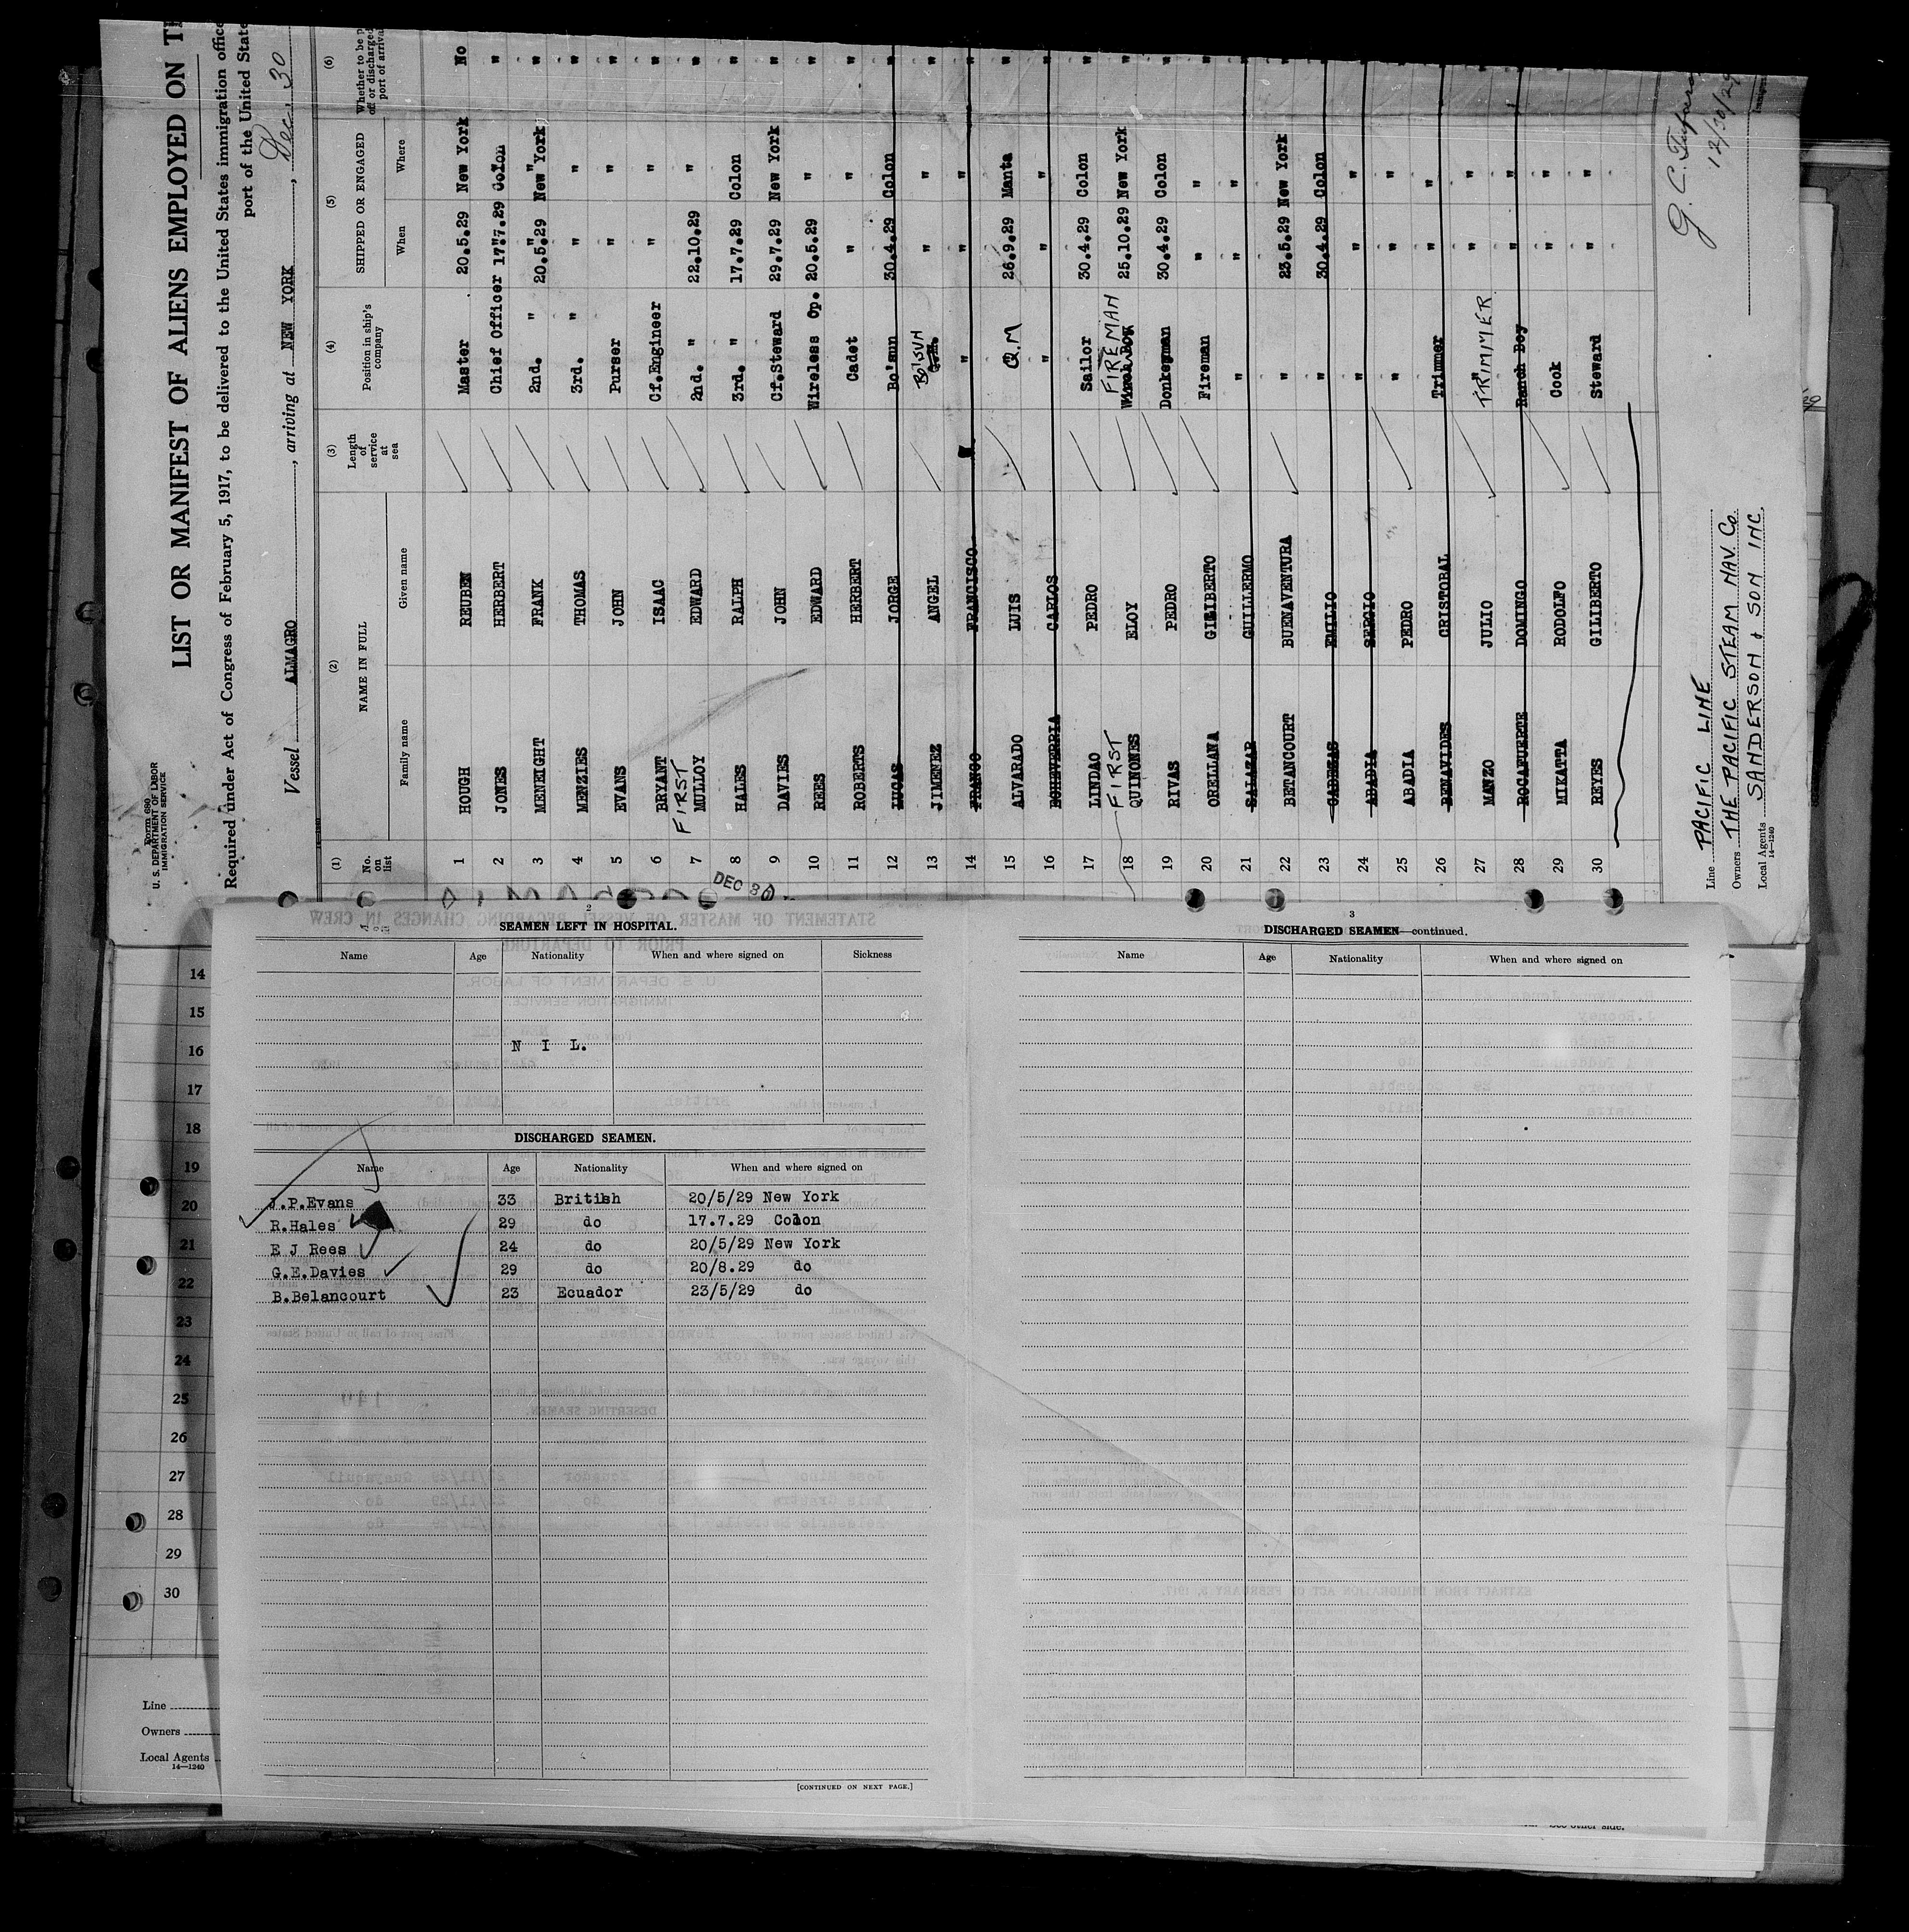 Form 680
U. S. DEPARTMENT OF LABOR
IMMIGRATION SERVICE
LIST OR MANIFEST OF ALIENS EMPLOYED ON
Required under Act of Congress of February 5, 1917, to be delivered to the United States immigration
port of the United
Vessel ALMAGRO, arriving at NEW YORK, Dec. 30
(1) (2) (3) (4) (5) (6)
No. on list NAME IN FULL Length of service at sea Position in ship's company SHIPPED OR ENGAGED Whether to be or discharged port of arrival
Family name Given name When Where
1 HOUGH REUBEN Master 20.5.29 New York No
2 JONES HERBERT Chief Officer 17.7.29 Colon "
3 MENEIGHT FRANK 2nd. " 20.5.29 New York "
4 MENZIES THOMAS 3rd. " " " "
5 EVANS JOHN Purser " " "
6 BRYANT ISAAC Cf.Engineer " " "
FIRST
7 MULLOY EDWARD 2nd. " 22.10.29 " "
8 HALES RALPH 3rd. " 17.7.29 Colon "
9 DAVIES JOHN Cf.Steward 29.7.29 New York "
10 REES EDWARD Wireless Op. 20.5.29 " "
11 ROBERTS HERBERT Cadet " " "
12 LUCAS JORGE Bo'sun 30.4.29 Colon "
13 JIMENEZ ANGEL BO'SUN " " "
14 FRANCO FRANCISCO " " " "
15 ALVARADO LUIS Q.M 26.9.29 Manta "
16 ECHEVERRIA CARLOS " " " "
17 LINDAO PEDRO Sailor 30.4.29 Colon "
FIRST FIREMAN
18 QUINONES ELOY 25.10.29 New York "
19 RIVAS PEDRO Donkeyman 30.4.29 Colon "
20 ORELLANA GILIBERTO Fireman " " "
21 SALAZAR GUILLERMO " " " "
22 BETANCOURT BUENAVENTURA " 23.5.29 New York "
23 CABEZAS EMILIO " 30.4.29 Colon "
24 ABADIA SERGIO " " " "
25 ABADIA PEDRO " " " "
26 BENAVIDES CRISTOBAL Trimmer " " "
27 MANZO JULIO TRIMMER " " "
28 ROCAFUERTE DOMINGO Ranch Boy " " "
29 MIKATTA RODOLFO Cook " " "
30 REYES GILIBERTO Steward " " "
Line PACIFIC LINE
Owners THE PACIFIC STEAM NAV. Co.
Local Agents SANDERSON & SON INC.
14—1240
12/30/29
DEC 30
SEAMEN LEFT IN HOSPITAL.
Name Age Nationality When and where signed on Sickness
N I L.
DISCHARGED SEAMEN.
Name Age Nationality When and where signed on
J.P.Evans 33 British 20/5/29 New York
R.Hales 29 do 17.7.29 Colon
E J Rees 24 do 20/5/29 New York
G.E.Davies 29 do 20/8.29 do
B.Belancourt 23 Ecuador 23/5/29 do
[CONTINUED ON NEXT PAGE.]
3
DISCHARGED SEAMEN—continued.
Name Age Nationality When and where signed on
14
15
16
17
18
19
20
21
22
23
24
25
26
27
28
29
30
Line
Owners
Local Agents
14—1240
See other side.